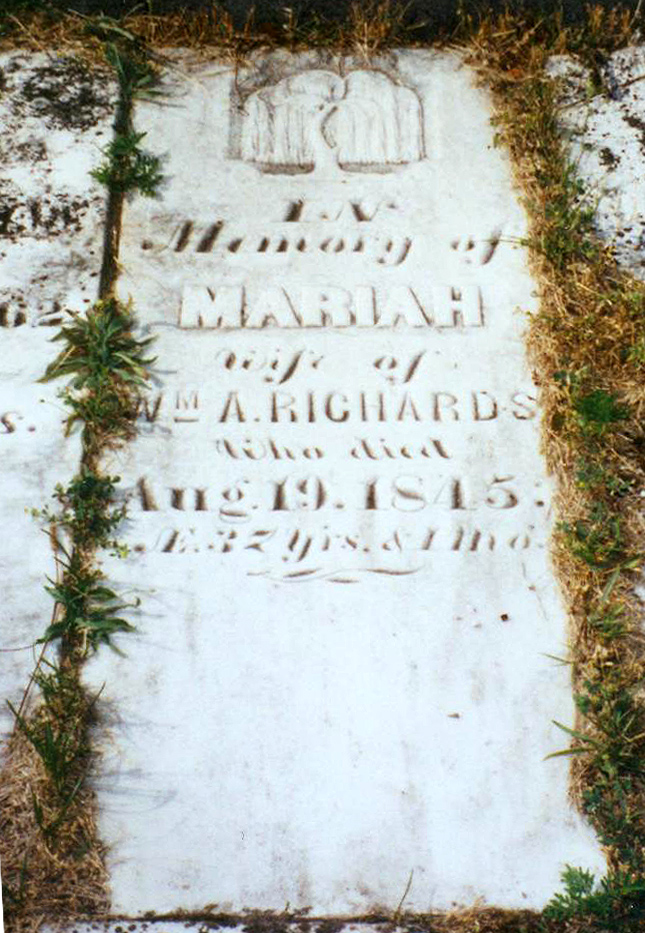 IN
Memory of
MARIAH
Wife of
Wm A. RICHARDS
Who died
Aug. 19. 1845:
Æ. 37 Yrs. & 1 mo.